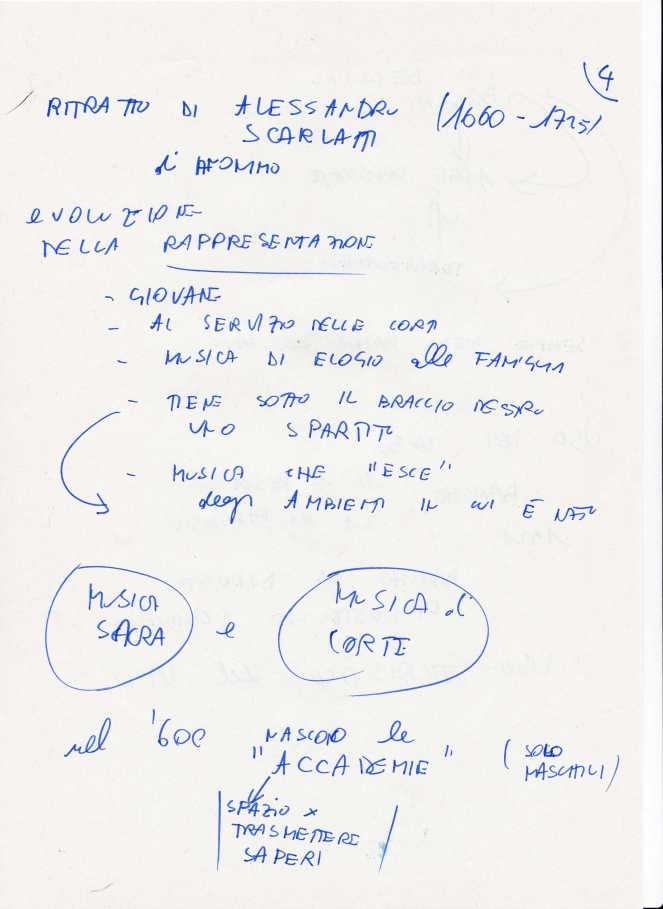 4
RITRATTO DI ALESSANDRO (1660-1725)
SCARLATTI
di ANONIMO
EVOLUZIONE
DELLA RAPPRESENTAZIONE
- GIOVANE
- AL SERVIZIO DELLE CORTI
- MUSICA DI ELOGIO alle FAMIGLIE
- TIENE SOTTO IL BRACCIO DESTRO
UNO SPARTITO
- MUSICA CHE "ESCE"
degli AMBIENTI IN CUI È NATO
MUSICA
SACRA
e
MUSICA di
CORTE
nel '600 NASCONO le
"ACCADEMIE" (SOLO
MASCHILI)
SPAZIO x
TRASMETTERE
SAPERI